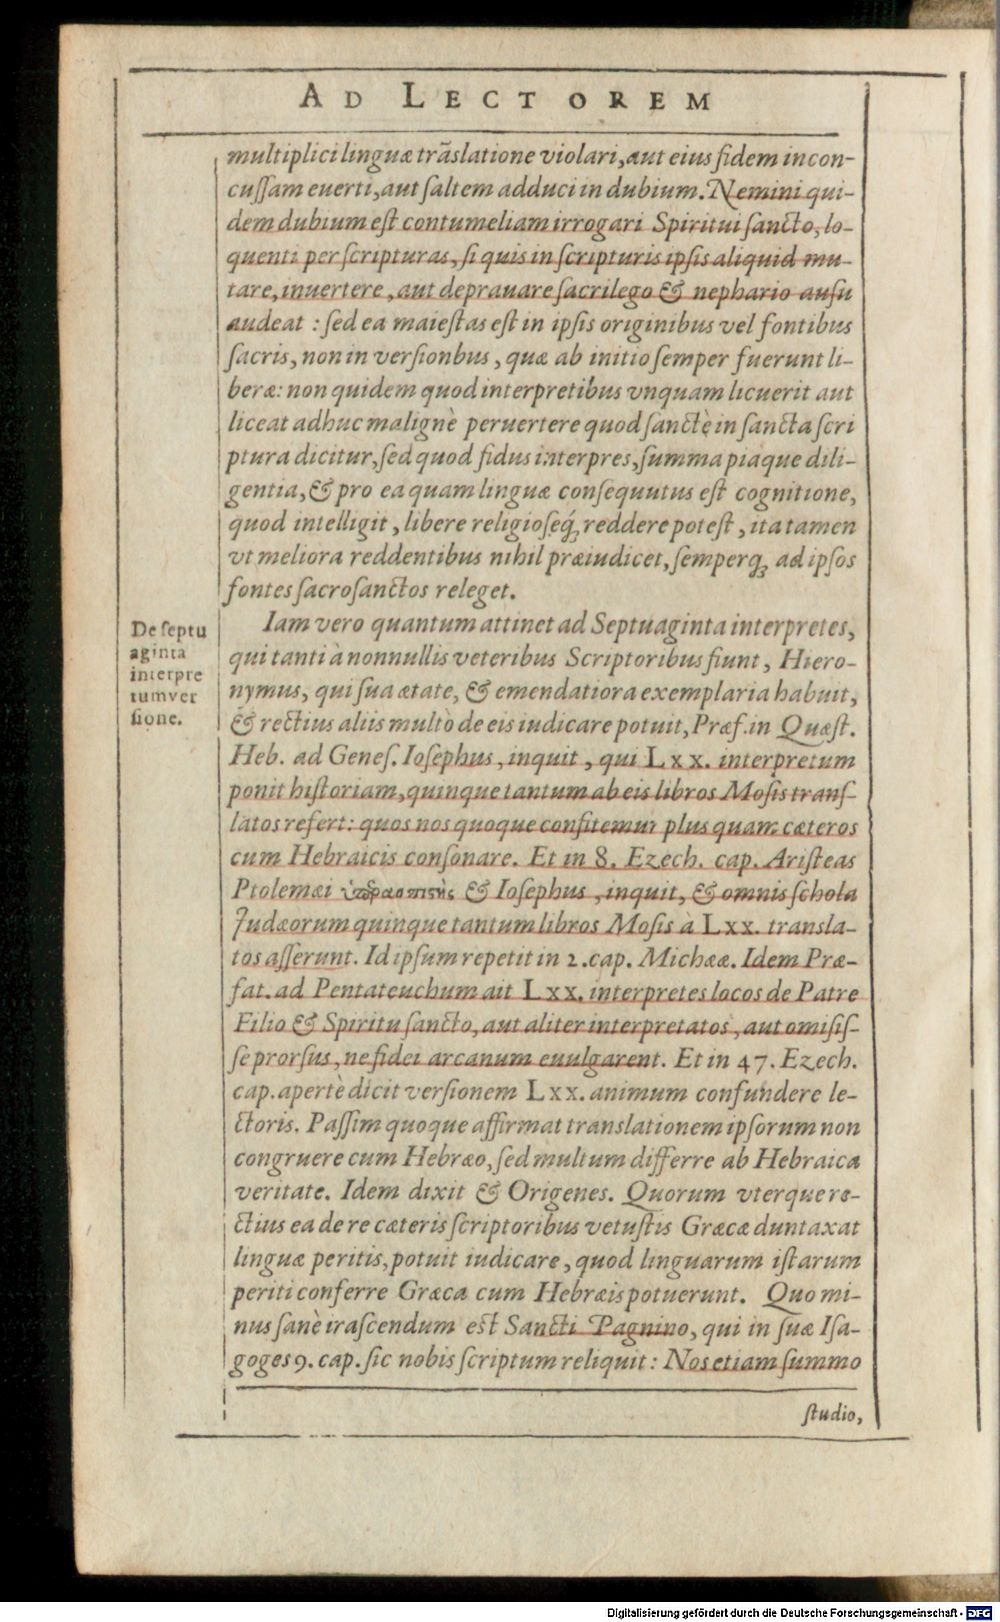 AD LECTOREM
multiplici linguæ trãslatione violari, aut eius fidem incon-
cussam euerti, aut saltem adduci in dubium. Nemini qui-
dem dubium est contumeliam irrogari Spiritui sancto, lo-
quenti per scripturas, si quis in scripturis ipsis aliquid mu-
tare, inuertere, aut deprauare sacrilego & nephario ausu
audeat : sed ea maiestas est in ipsis originibus vel fontibus
sacris, non in versionbus, quæ ab initio semper fuerunt li-
beræ: non quidem quod interpretibus vnquam licuerit aut
liceat adhuc malignè peruertere quod sanctè in sancta scri
ptura dicitur, sed quod fidus interpres, summa piaque dili-
gentia, & pro ea quam linguæ consequutus est cognitione,
quod intelligit, libere religioseq́; reddere potest, ita tamen
vt meliora reddentibus nihil præiudicet, semperq; ad ipsos
fontes sacrosanctos releget.
De septu
aginta
interpre
tum ver
sione.
Iam vero quantum attinet ad Septuaginta interpretes,
qui tanti à nonnullis veteribus Scriptoribus fiunt, Hiero-
nymus, qui sua ætate, & emendatiora exemplaria habuit,
& rectius aliis multò de eis iudicare potuit, Præf. in Quæst.
Heb. ad Genes. Iosephus, inquit, qui Lxx. interpretum
ponit historiam, quinque tantum ab eis libros Mosis trans-
latos refert: quos nos quoque confitemur plus quam cæteros
cum Hebraicis consonare. Et in 8. Ezech. cap. Aristeas
Ptolemæi & Iosephus, inquit, & omnis schola
Judæorum quinque tantum libros Mosis à Lxx. transla-
tos asserunt. Id ipsum repetit in 2. cap. Michææ. Idem Præ-
fat. ad Pentateuchum ait Lxx. interpretes locos de Patre
Filio & Spiritu sancto, aut aliter interpretatos, aut omisis-
se prorsus, ne fidei arcanum euulgarent. Et in 47. Ezech.
cap. apertè dicit versionem Lxx. animum confundere le-
ctoris. Passim quoque affirmat translationem ipsorum non
congruere cum Hebræo, sed multum differre ab Hebraica
veritate. Idem dixit & Origenes. Quorum vterque re-
ctius ea de re cæteris scriptoribus vetustis Græcæ duntaxat
linguæ peritis, potuit iudicare, quod linguarum istarum
periti conferre Græca cum Hebræis potuerunt. Quo mi-
nus sanè irascendum est Sancti Pagnino, qui in suæ Isa-
goges 9. cap. sic nobis scriptum reliquit: Nos etiam summo
studio,
Digitalisierung gefördert durch die Deutsche Forschungsgemeinschaft - DFG